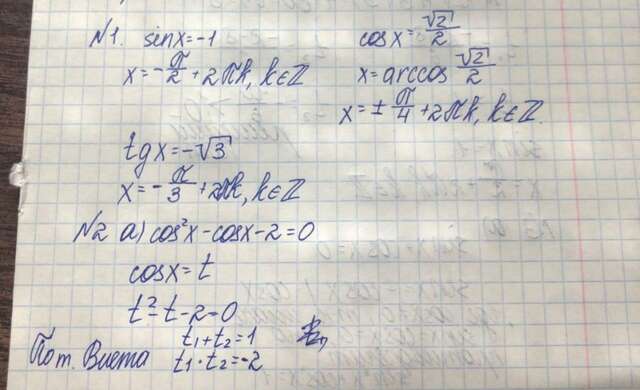 N1. sinx=-1
x=-π/2+2πk, k∈Z
cosx=√2/2
x=arccos √2/2
x=±π/4+2πk, k∈Z.
tgx=-√3
x=-π/3+2πk, k∈Z
N2 a) cos²x-cosx-2=0
cosx=t
t²-t-2=0
По т. Виета t₁+t₂=1
t₁·t₂=-2